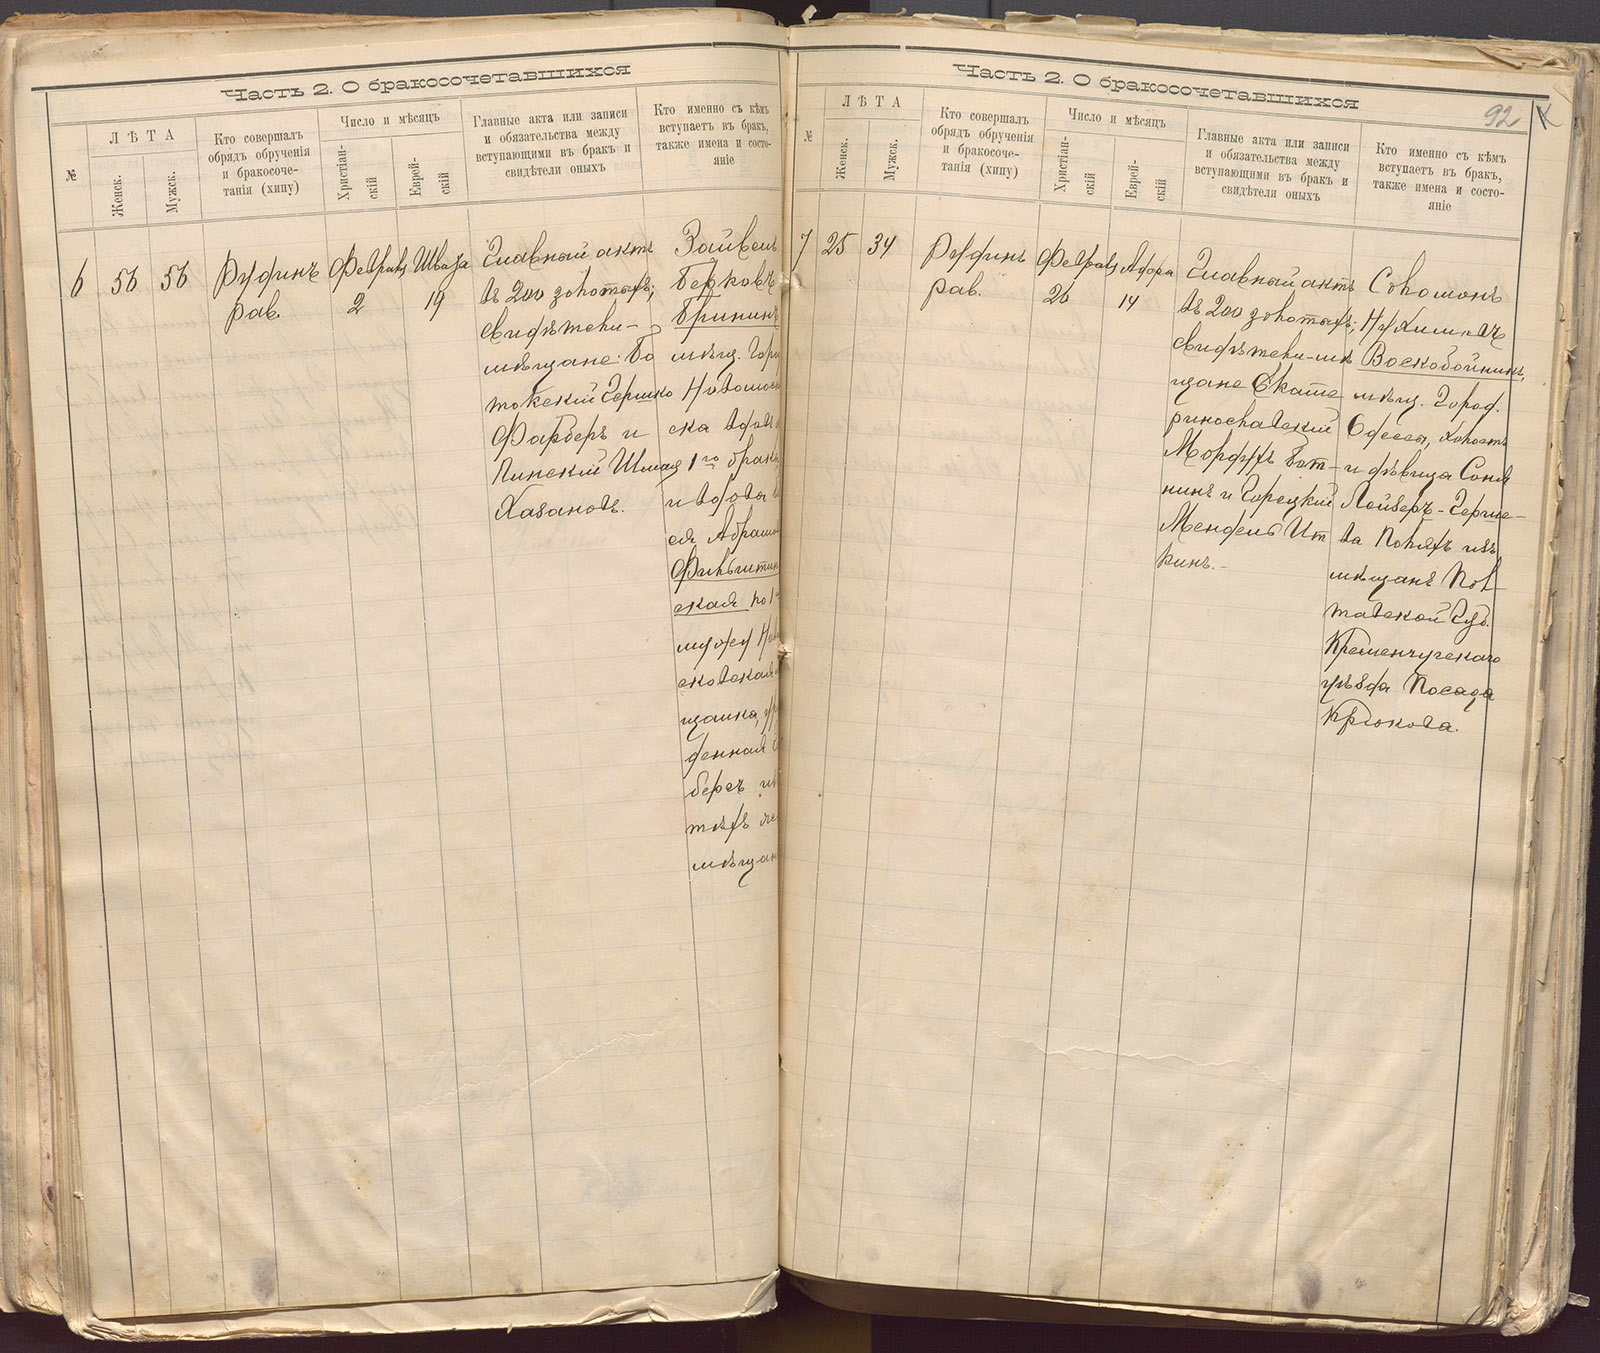 Часть 2. О бракосочетавшихся
№
ЛѢТА
Женск.
Мужск.
Кто совершалъ
обрядъ обрученія
и бракосоче-
танія (хипу)
Число и мѣсяцъ
Христіан-
скій
Еврей-
скій
Главные акта или записи
и обязательства между
вступающими въ бракъ и
свидѣтели оныхъ
Кто именно съ кѣмъ
вступаетъ въ бракъ,
также имена и состо-
яніе
6
56
56
Руфинъ
рав.
Февраля
2
Швата
19
Главный актъ
въ 200 золотыхъ;
свидѣтели-
мѣщане: Бо
токскій Гершко
Фарберъ и
Пинскій Шмая
Хазановъ.
Зайвель
Берковъ
Брипинъ
мѣщ. Горо
Новомос
ска вдовъ
1го брака
и вдова
ея Абрамо
скай по 1
мужу Но
сковская
щанка, ур
денная
берсъ из
тѣхъ же
мѣщан
Часть 2. О бракосочетавшихся
92
№
ЛѢТА
Женск.
Мужск.
Кто совершалъ
обрядъ обрученія
и бракосоче-
танія (хипу)
Число и мѣсяцъ
Христіан-
скій
Еврей-
скій
Главные акта или записи
и обязательства между
вступающими въ бракъ и
свидѣтели оныхъ
Кто именно съ кѣмъ
вступаетъ въ бракъ,
также имена и состо-
яніе
7
25
34
Руфинъ
рав.
Февраля
26
Адора
14
Главный актъ
въ 200 золотыхъ;
свидѣтели-мѣ
щане Екате
ринославскій
Мордухъ Бот-
нинъ и Горецкій
Мендель Ит
кинъ.-
Соломонъ
Нухимовъ
Воскобойникъ,
мѣщ. Город.
Одессы, холостъ
и дѣвица Соня
Лейберъ-Герше-
ва Полякъ изъ
мѣщанъ Пол-
тавской Губ.
Кременчугскаго
уѣзда Посада
Крюкова.